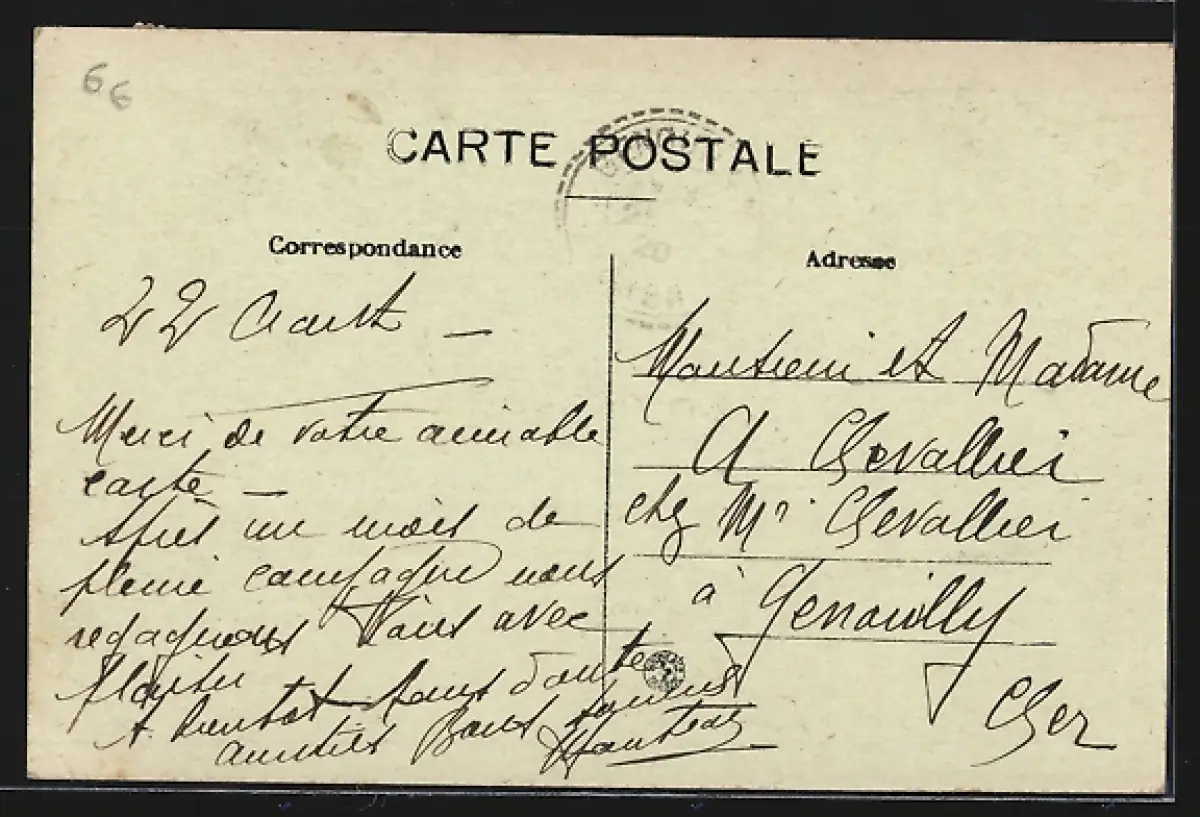 66
CARTE POSTALE
Correspondance
22 Août —
Merci de votre aimable
carte —
Après un mois de
pleine campagne nous
regagnons Paris avec
plaisir
A bientôt sans doute
amitiés Bons
Adresse
Monsieur et Madame
A Chevallier
chez Mr Chevallier
à Genouilly
Cher